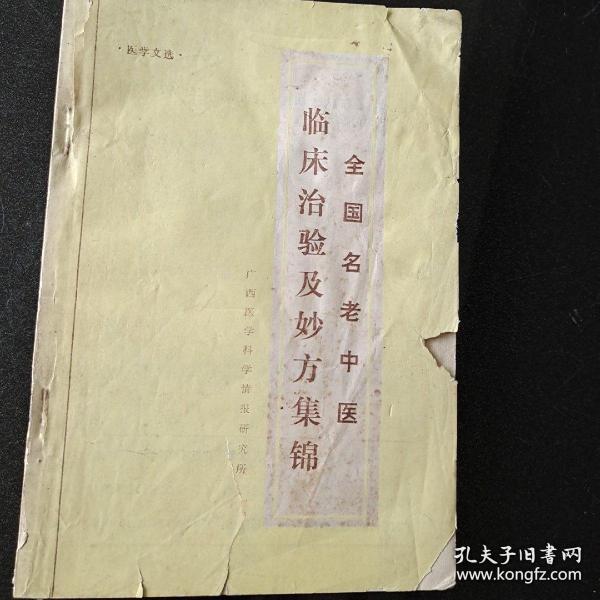 ·医学文选·
全国名老中医
临床治验及妙方集锦
广西医学科学情报研究所
孔夫子旧书网
www.kongfz.com